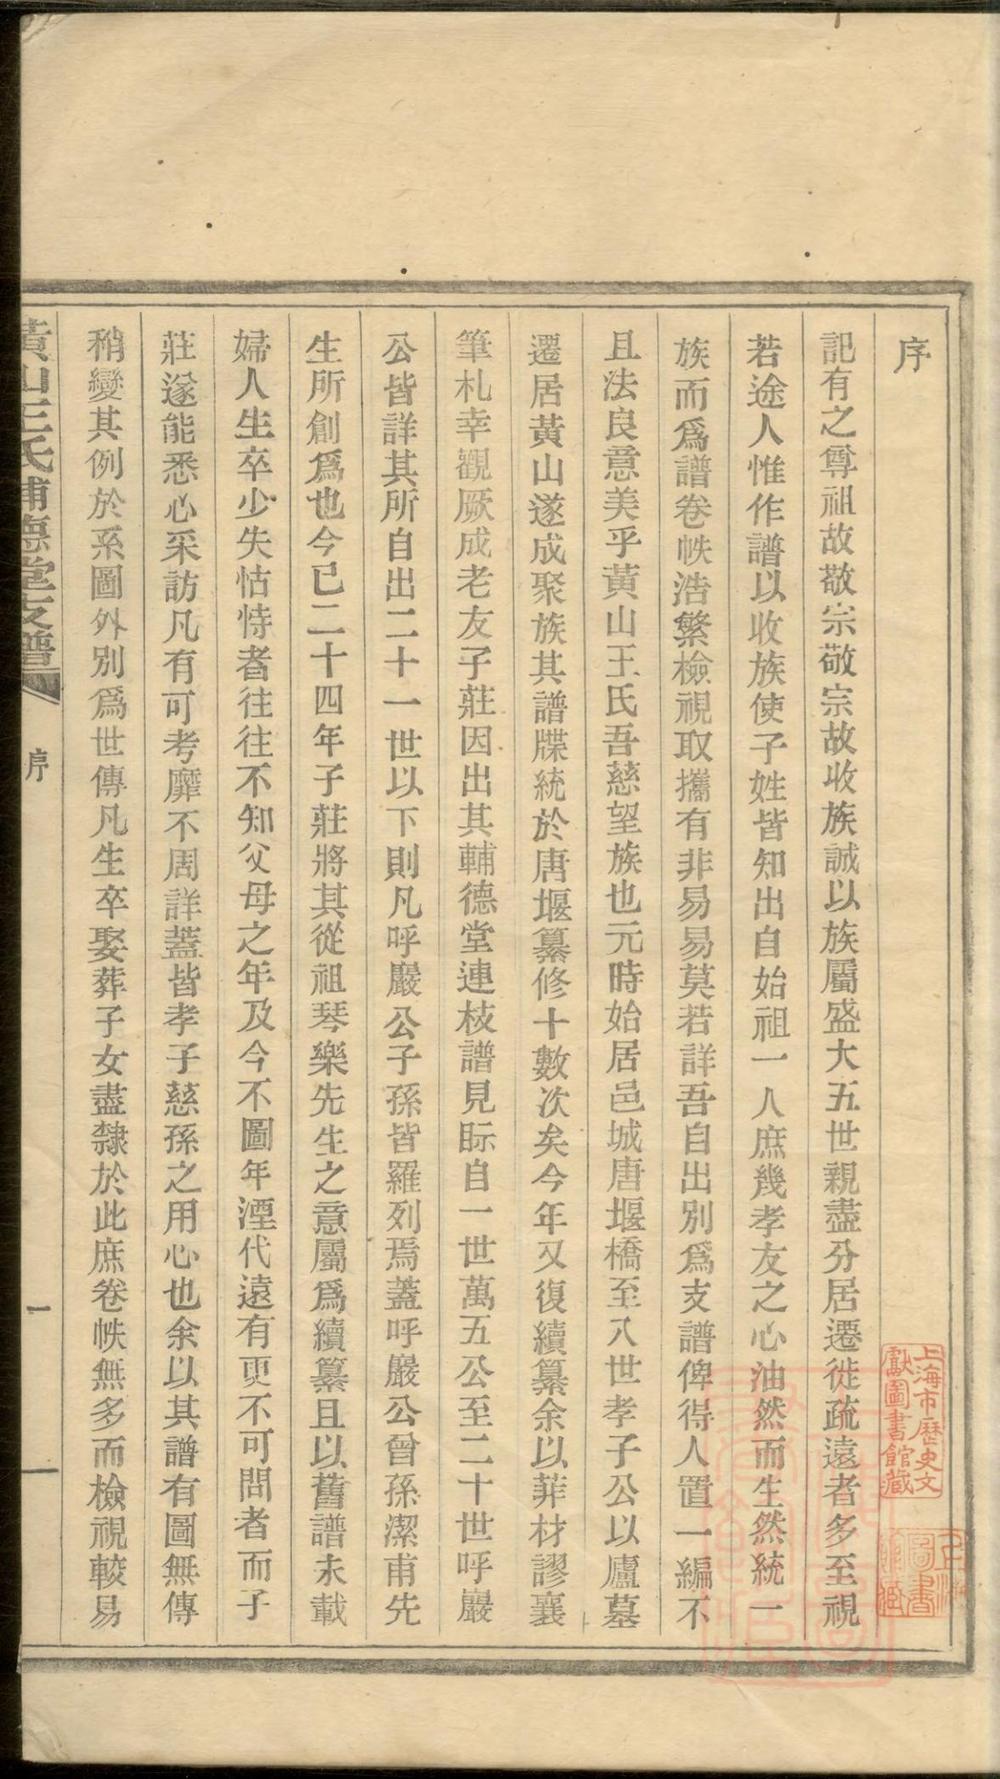 序
記有之尊祖故敬宗敬宗故收族誠以族屬盛大五世親盡分居遷徙疏遠者多至視
若途人惟作譜以收族使子姓皆知出自始祖一人庶幾孝友之心油然而生然統一
族而爲譜卷帙浩繁檢視取攜有非易易莫若詳吾自出別爲支譜俾得人置一編不
且法良意美乎黃山王氏吾慈望族也元時始居邑城唐堰橋至八世孝子公以廬墓
遷居黃山遂成聚族其譜牒統於唐堰纂修十數次矣今年又復續纂余以菲材謬襄
筆札幸觀厥成老友子莊因出其輔德堂連枝譜見眎自一世萬五公至二十世呼巖
公皆詳其所自出二十一世以下則凡呼巖公子孫皆羅列焉蓋呼巖公曾孫潔甫先
生所創爲也今已二十四年子莊將其從祖琴樂先生之意屬爲續纂且以舊譜未載
婦人生卒少失怙恃者往往不知父母之年及今不圖年湮代遠有更不可問者而子
莊遂能悉心采訪凡有可考靡不周詳蓋皆孝子慈孫之用心也余以其譜有圖無傳
稍變其例於系圖外別爲世傳凡生卒娶葬子女盡隸於此庶卷帙無多而檢視較易
黃山王氏輔德堂支譜 序 一
上海市歷史文
獻圖書館藏